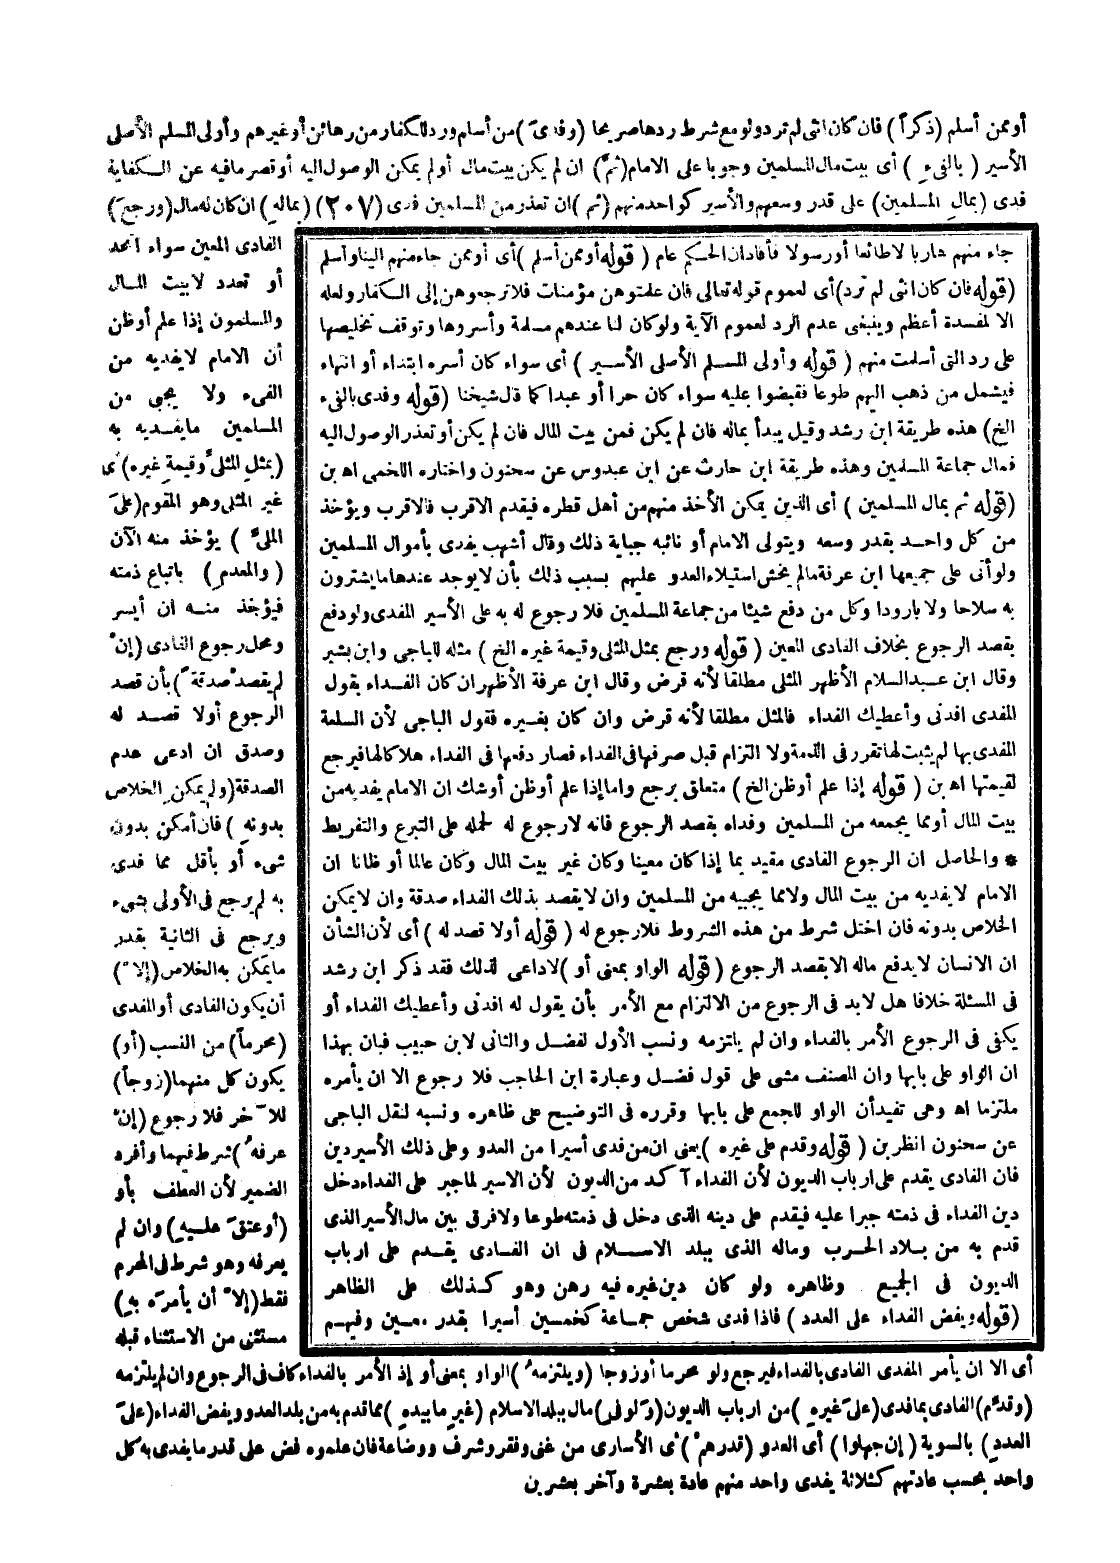 أو ممن أسلم (ذكراً) فان كان انثى لم ترد ولو مع شرط ردها صريحا (وفدى) من أسلم ورد للكفار من رهائن أو غيرهم وأولى المسلم الأصلى
الأسير (بالفىء) أى بيت مال المسلمين وجوبا على الامام (ثم) ان لم يكن بيت مال أو لم يمكن الوصول اليه أو قصر مافيه عن الكفاية
فدى (بمال المسلمين) على قدر وسعهم والأسير كواحد منهم (ثم) ان تعذر من المسلمين فدى (٢٠٧) (بماله) ان كان له مال (ورجع)
الفادى المعين سواء اتحد
أو تعدد لا بيت المال
والمسلمون إذا علم أو ظن
أن الامام لا يفديه من
الفىء ولا يجبى من
المسلمين ما يفديه به
(بمثل المثلى وقيمة غيره) أى
غير المثلى وهو المقوم (على
الملى) يؤخذ منه الآن
(والمعدم) باتباع ذمته
فيؤخذ منه ان أيسر
ومحل رجوع الفادى (إن
لم يقصد صدقة) بأن قصد
الرجوع أولا قصد له
وصدق ان ادعى عدم
الصدقة (ولم يمكن الخلاص
بدونه) فان أمكن بدون
شىء أو بأقل مما فدى
به لم يرجع فى الأولى بشىء
ويرجع فى الثانية بقدر
ما يمكن به الخلاص (إلا)
أن يكون الفادى أو المفدى
(محرماً) من النسب (أو)
يكون كل منهما (زوجاً)
للآخر فلا رجوع (إن
عرفه) شرط فيهما وأفرد
الضمير لأن العطف بأو
(أو عتق عليه) وان لم
يعرفه وهو شرط فى المحرم
فقط (إلا أن يأمره به)
مستثنى من الاستثناء قبله
جاء منهم هاربا لا طائعا أو رسولا فأفاد ان الحكم عام (قوله أو ممن أسلم) أى أو ممن جاء منهم الينا وأسلم
(قوله فان كان انثى لم ترد) أى لعموم قوله تعالى فان علمتوهن مؤمنات فلا ترجعوهن إلى الكفار ولعله
الا لمفسدة أعظم وينبغى عدم الرد لعموم الآية ولو كان لنا عندهم مسلمة وأسروها وتوقف تخليصها
على رد التى أسلمت منهم (قوله وأولى المسلم الأصلى الأسير) أى سواء كان أسره ابتداء أو انتهاء
فيشمل من ذهب اليهم طوعا فقبضوا عليه سواء كان حرا أو عبدا كما قال شيخنا (قوله وفدى بالفىء
الخ) هذه طريقة ابن رشد وقيل يبدأ بماله فان لم يكن فمن بيت المال فان لم يكن أو تعذر الوصول اليه
فمال جماعة المسلمين وهذه طريقة ابن حارث عن ابن عبدوس عن سحنون واختاره اللخمى اه بن
(قوله ثم بمال المسلمين) أى الذين يمكن الأخذ منهم من أهل قطره فيقدم الاقرب فالاقرب ويؤخذ
من كل واحد بقدر وسعه ويتولى الامام أو نائبه جباية ذلك وقال أشهب يفدى بأموال المسلمين
ولو أتى على جميعها ابن عرفة مالم يخش استيلاء العدو عليهم بسبب ذلك بأن لا يوجد عندها ما يشترون
به سلاحا ولا بارودا وكل من دفع شيئا من جماعة المسلمين فلا رجوع له به على الأسير المفدى ولو دفع
بقصد الرجوع بخلاف الفادى المعين (قوله ورجع بمثل المثلى وقيمة غيره الخ) مثله للباجى وابن بشير
وقال ابن عبد السلام الأظهر المثلى مطلقا لأنه قرض وقال ابن عرفة الأظهر ان كان الفداء بقول
المفدى افدنى وأعطيك الفداء فالمثل مطلقا لأنه قرض وان كان بغيره فقول الباجى لأن السلعة
المفدى بها لم يثبت لها تقرر فى الذمة ولا التزام قبل صرفها فى الفداء فصار دفعها فى الفداء هلاكا لها فيرجع
لقيمتها اه بن (قوله إذا علم أو ظن الخ) متعلق برجع واما إذا علم أو ظن أو شك ان الامام يفديه من
بيت المال أو مما يجمعه من المسلمين وفداه بقصد الرجوع فانه لا رجوع له لحمله على التبرع والتفريط
* والحاصل ان الرجوع الفادى مقيد بما إذا كان معينا وكان غير بيت المال وكان عالما أو ظانا ان
الامام لا يفديه من بيت المال ولا مما يجبيه من المسلمين وان لا يقصد بذلك الفداء صدقة وان لا يمكن
الخلاص بدونه فان اختل شرط من هذه الشروط فلا رجوع له (قوله أولا قصد له) أى لأن الشأن
ان الانسان لا يدفع ماله الا بقصد الرجوع (قوله الواو بمعنى أو) لا داعى لذلك فقد ذكر ابن رشد
فى المسئلة خلافا هل لابد فى الرجوع من الالتزام مع الأمر بأن يقول له افدنى وأعطيك الفداء أو
يكفى فى الرجوع الأمر بالفداء وان لم يلتزمه ونسب الأول لفضل والثانى لابن حبيب فبان بهذا
ان الواو على بابها وان المصنف مشى على قول فضل وعبارة ابن الحاجب فلا رجوع الا ان يأمره
ملتزما اه وهى تفيد أن الواو للجمع على بابها وقرره فى التوضيح على ظاهره ونسبه لنقل الباجى
عن سحنون انظر بن (قوله وقدم على غيره) يعنى ان من فدى أسيرا من العدو وعلى ذلك الأسير دين
فان الفادى يقدم على ارباب الديون لأن الفداء آكد من الديون لأن الاسير لما جبر على الفداء دخل
دين الفداء فى ذمته جبرا عليه فيقدم على دينه الذى دخل فى ذمته طوعا ولا فرق بين مال الأسير الذى
قدم به من بلاد الحرب وماله الذى ببلد الاسلام فى ان الفادى يقدم على ارباب
الديون فى الجميع وظاهره ولو كان دين غيره فيه رهن وهو كذلك على الظاهر
(قوله ويفض الفداء على العدد) فاذا فدى شخص جماعة كخمسين أسيرا بقدر معين وفيهم
أى الا ان يأمر المفدى الفادى بالفداء فيرجع ولو محرما أو زوجا (ويلتزمه) الواو بمعنى أو إذ الأمر بالفداء كاف فى الرجوع وان لم يلتزمه
(وقدم) الفادى بما فدى (على غيره) من ارباب الديون (ولو فى) مال ببلد الاسلام (غير ما بيده) مما قدم به من بلد العدو ويفض الفداء (على
العدد) بالسوية (إن جهلوا) أى العدو (قدرهم) أى الأسارى من غنى وفقر وشرف ووضاعة فان علموه فض على قدر ما يفدى به كل
واحد بحسب عادتهم كثلاثة يفدى واحد منهم عادة بعشرة وآخر بعشرين